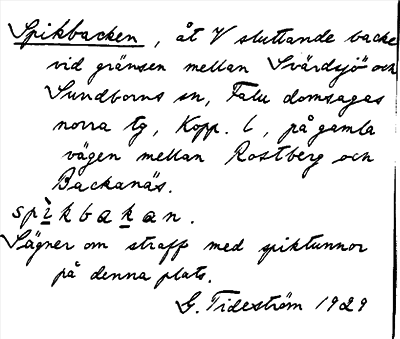 Spikbacken, åt V sluttande backe
vid gränsen mellan Svärdsjö och
Sundborns sn, Falu domsagas
norra tg, Kopp. l, på gamla
vägen mellan Rostberg och
Backanäs.
spìkbakan.
Sägner om straff med spiktunnor
på denna plats.
G. Tideström 1929